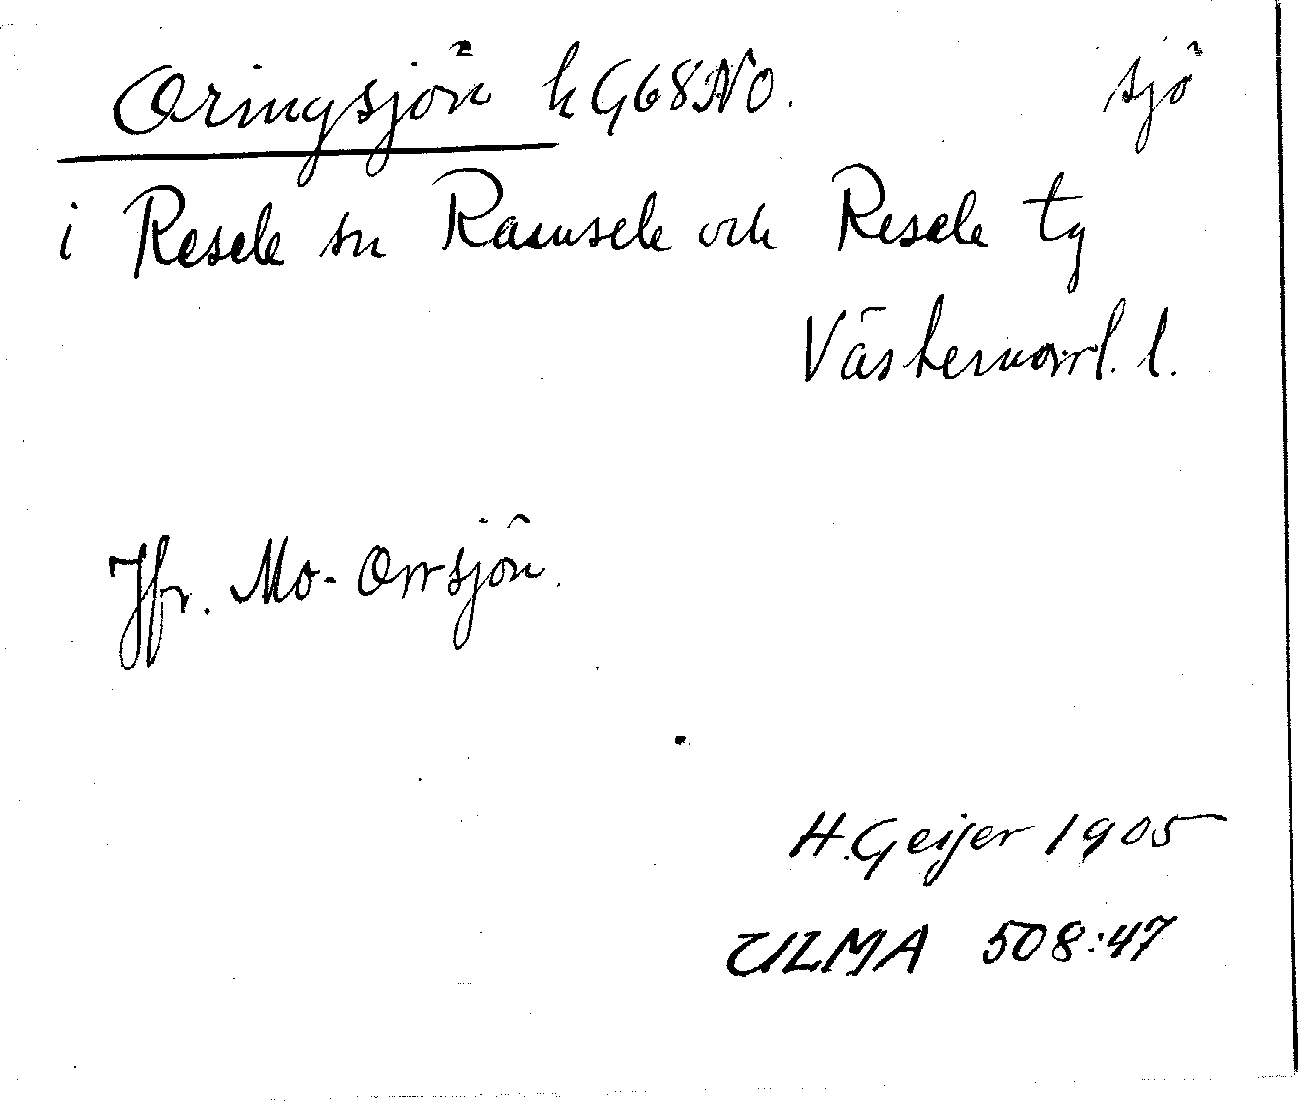 Oringsjön k G68NO. sjö
i Resele sn Ramsele och Resele tg
Västernorrl. l.
Jfr. Mo-Orrsjön.
H. Geijer 1905
ULMA 508:47